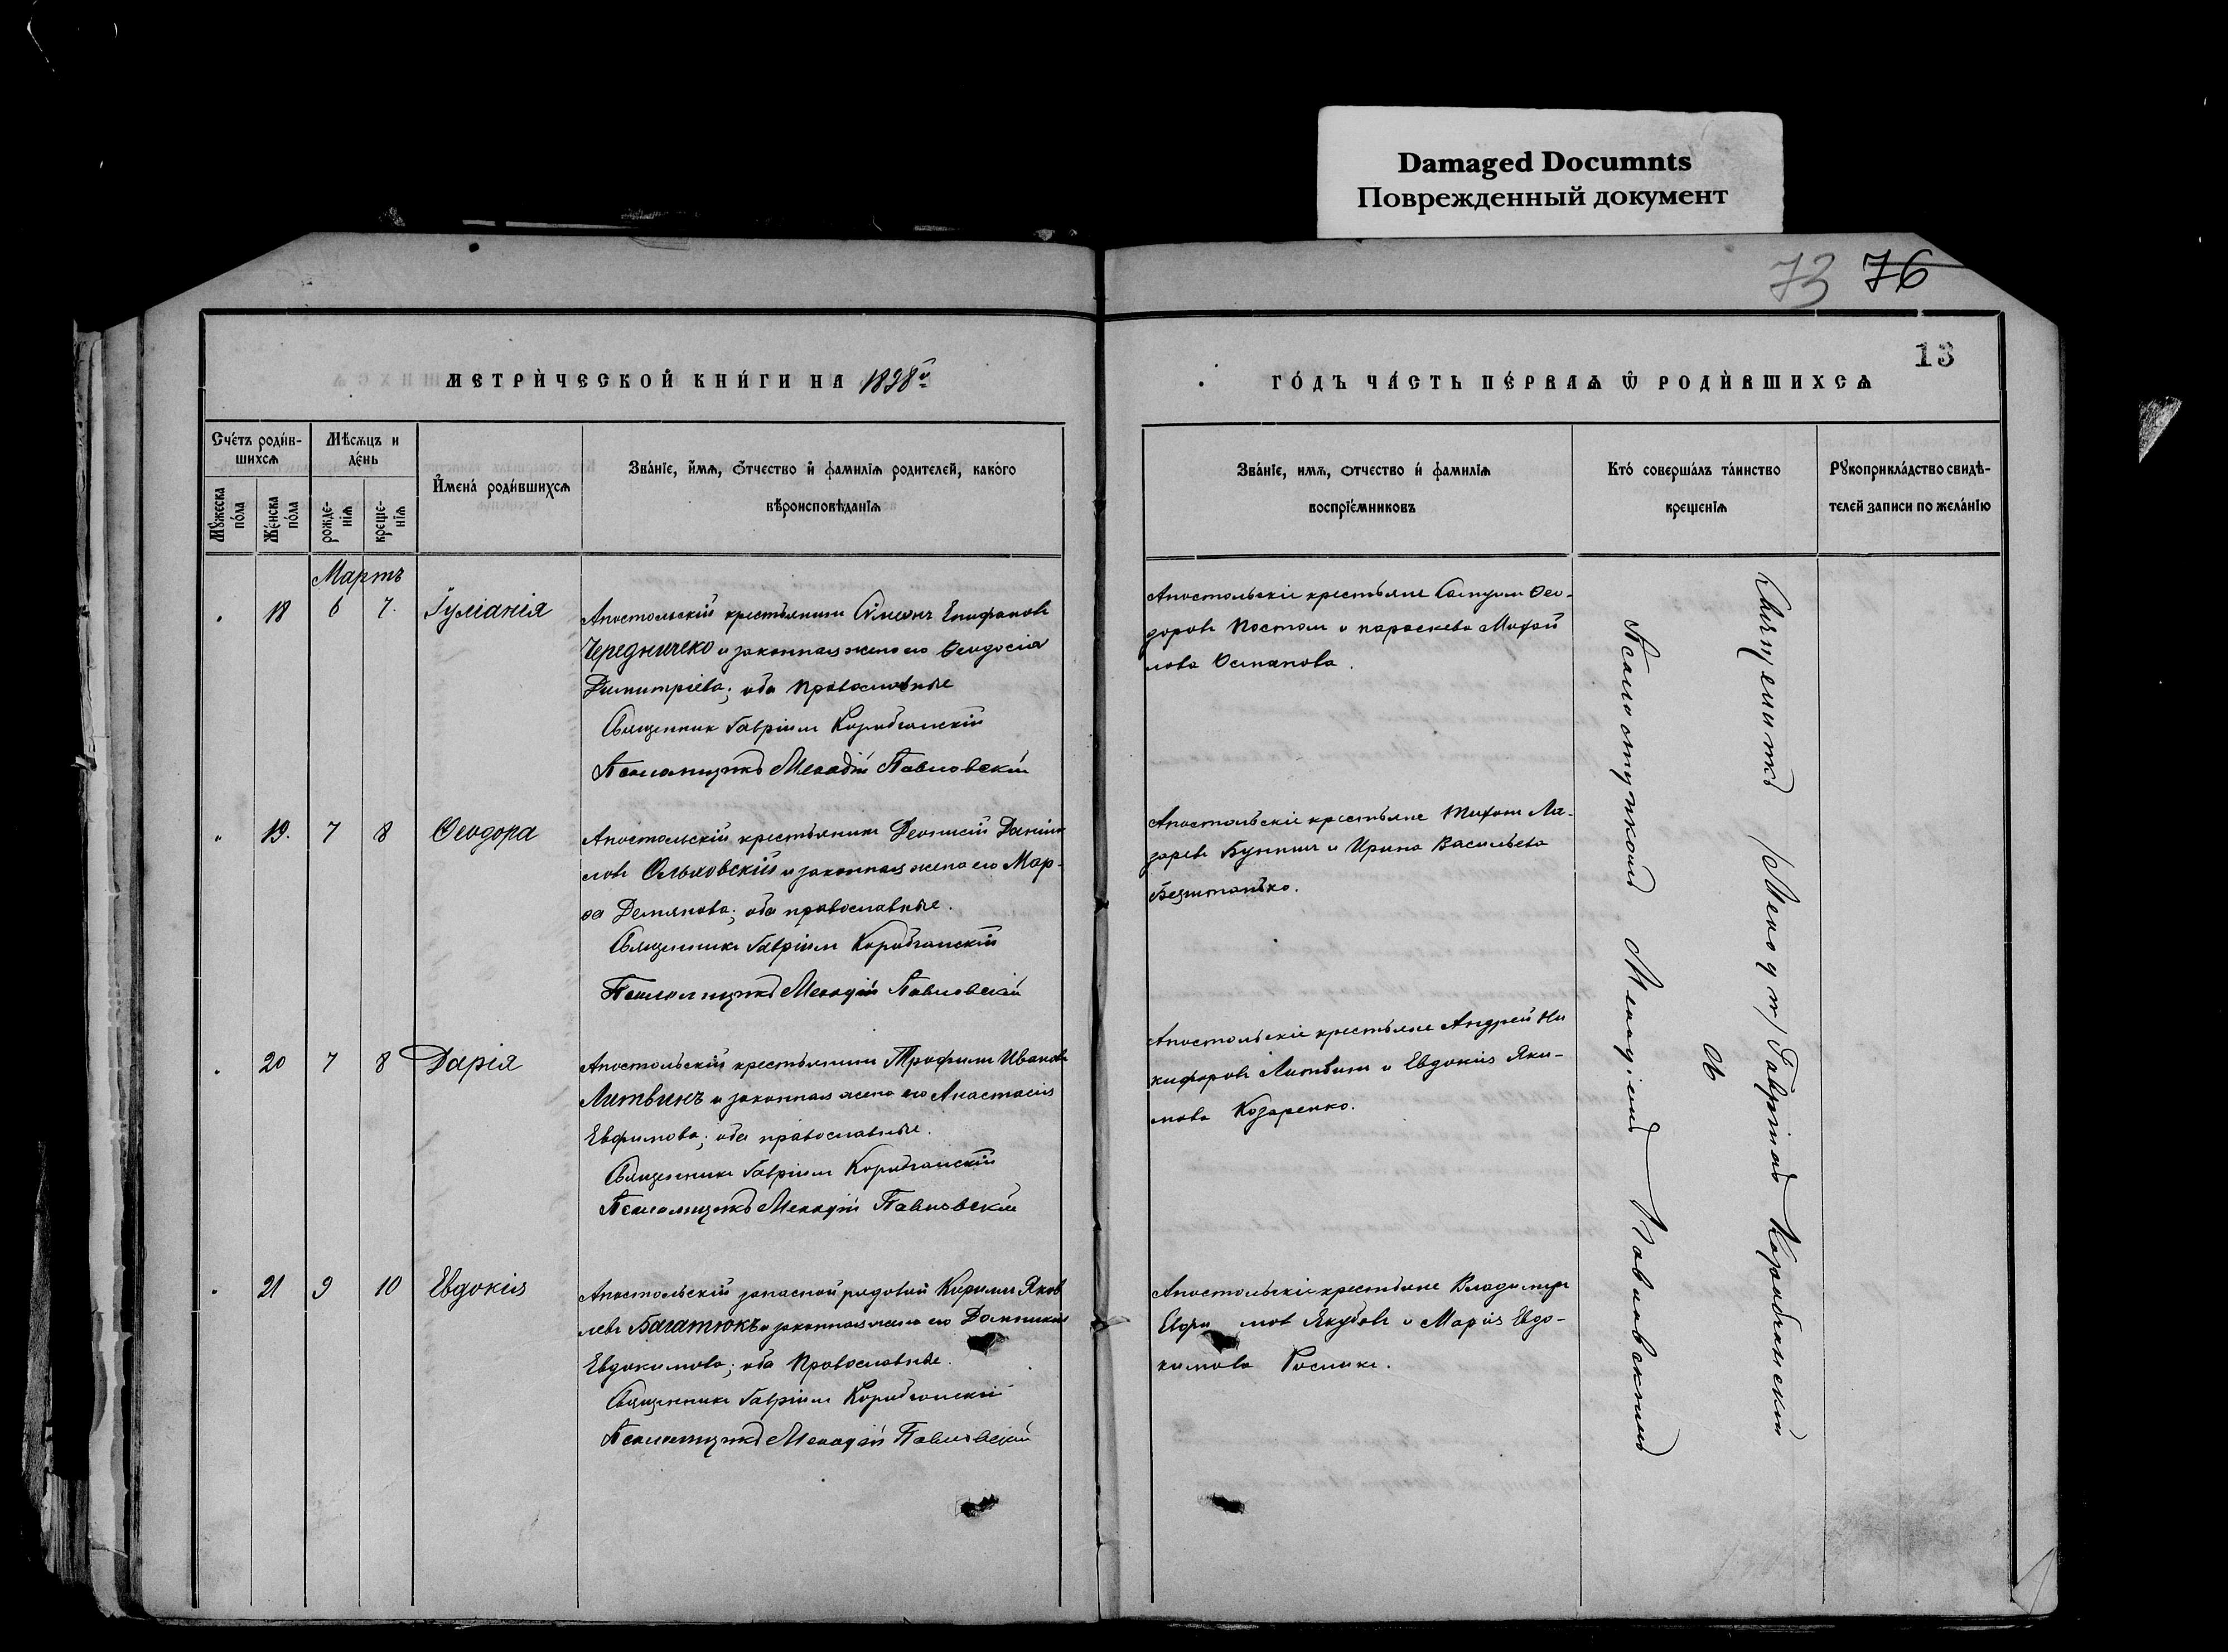 Damaged Documnts
Поврежденный документ
73 76
13
МЕТРИ́ЧЕСКОЙ КНИ́ГИ НА 1898й
ГО́ДЪ ЧА́СТЬ ПЕ́РВАѦ Ѡ҆ РОДИ́ВШИХСѦ
Сче́тъ роди́в-
шихсѧ
Мꙋ́жеска
по́ла
Же́нска
по́ла
Мѣ́сѧцъ и
де́нь
рожде-
нїѧ
креще-
нїѧ
И҆мена́ роди́вшихсѧ
Зва́нїе, и҆́мѧ, ѻ҆́тчество и҆ фамилїѧ родителей, како́го
вѣроисповѣ́данїѧ
Зва́нїе, имѧ, ѻтчество и҆ фамилїѧ
воспрїе́мниковъ
Кто́ соверша́лъ та́инство
крещенїѧ
Рꙋкоприкла́дство свидѣ́-
телей записи по жела́нїю
Мартъ
" 18 6 7. Іуліанія
Апостольскій крестьянинъ Сѵмеонъ Епифановъ
Чередниченко и законная жена его Ѳеодосія
Димитріева; оба православные
Священник Гавріилъ Коробчанскій
Псаломщикъ Меѳодій Павловскій
Апостольскіе крестьяне Ѳео-
доровъ и параскева Михай
лова Остапова.
" 19. 7 8 Ѳеодора
Апостольскій крестьянинъ Деонисій Даніи
ловъ Ольховскій и законная жена его Мар-
ѳа Демянова; оба православные.
Священникъ Гавріилъ Коробчанскій
Псаломщикъ Меѳодій Павловскій
Апостольскіе крестьяне Тихонъ Ла-
заревъ и Ирина Васильева
" 20 7 8 Дарія
Апостольскій крестьянинъ Трофимъ Ивановъ
Литвинъ и законная жена его Анастасія
Евфимова; оба православные.
Священникъ Гавріилъ Коробчанскій
Псаломщикъ Меѳодій Павловскій
Апостольскіе крестьяне Андрей Ни
кифоровъ Литвинъ и Евдокія Яки-
мова Козаренко.
" 21 9 10 Евдокія
Апостольскій запасной рядовой Кириллъ Яков
левъ Багатюкъ и законная жена его Домникія
Евдокимова; оба Православные.
Священникъ Гавріилъ Коробчанскій
Псаломщикъ Меѳодій Павловскій
Апостольскіе крестьяне Владимиръ
Евфи мов Якубовъ и Марія Евдо-
кимова
Священникъ Гавріилъ Коробчанскій
съ
Псаломщикомъ Меѳодіемъ Павловскимъ